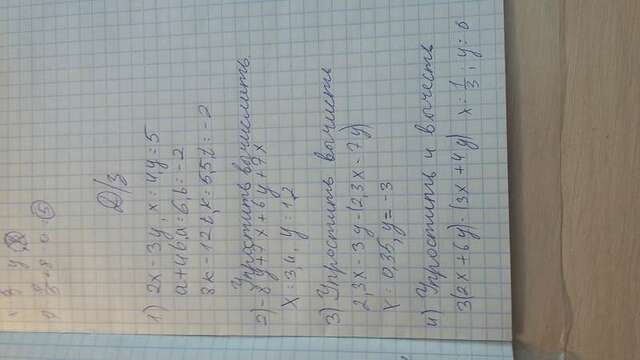 Д/з
1) 2x - 3y; x = 4, y = 5
a + 4b, a = 6, b = -2
3k - 12t, k = 5,5, t = -2
Упростить вычислить
2) -8y + 5x + 6y + 7x
x = 3,4, y = 1,2
3) Упростить вычисть
2,3x - 3y - (2,3x - 7y)
x = 0,35, y = -3
4) Упростить и вычесть
3(2x + 6y) - (3x + 4y) x = 1/3; y = 6